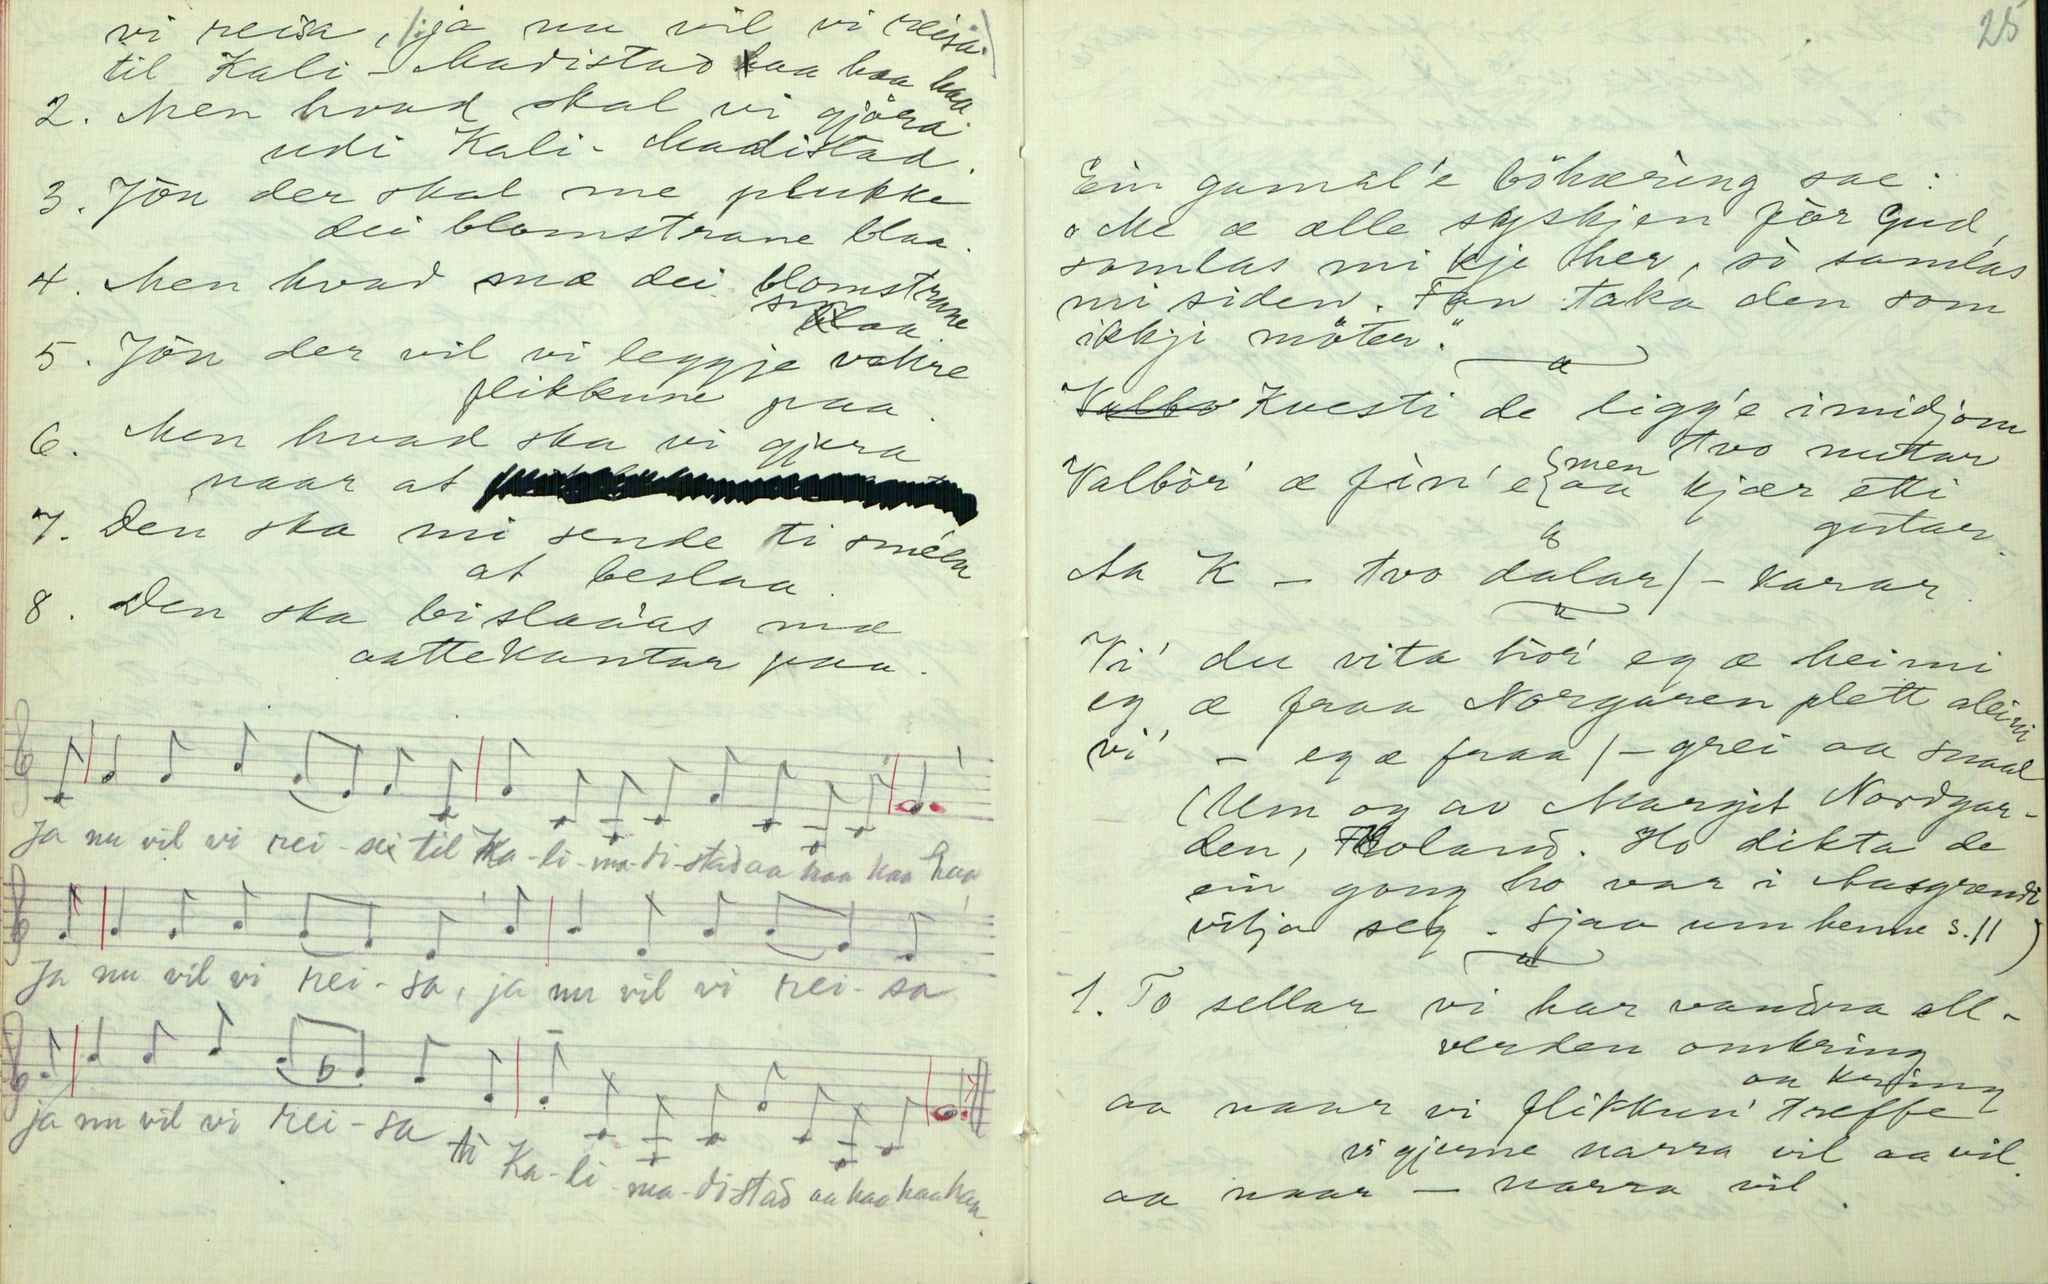 vi reisa, /: ja nu vil vi reisa :/
til Kali-Madistad haa haa haa
2. Men hvad skal vi gjöra
udi Kali-Madistad.
3. Jön der skal me plukke
dei blomstrane blaa.
4. Men hvad mæ dei blomstrane
smaa
5. Jön der vil vi leggje vakre
flikkune paa.
6. Men hvad ska vi gjera
naar at
7. Den ska mi sende ti sméen
at beslaa.
8. Den ska bislaaas mæ
aattekantar paa.
Ja nu vil vi rei-se til Ka-li-ma-di-stad aa haa haa haa
Ja nu vil vi rei-sa, ja nu vil vi rei-sa
ja nu vil vi rei-sa ti Ka-li-ma-distad aa haa haa haa.
25
Ein gamal'e böhæring sae:
"Me æ ælle syskjen för Gud,
somlas mi kje her, so samlas
mi siden. Fan taka den som
ikkji möter."
Valbo Kvesti de ligg'e imidjom
tvo nutar
Valbör' æ fin'e men aa kjær etti
gutar.
Aa K – tvo dalar / – karar.
Vi' du vita hor' eg æ heimi
eg æ fraa Norgaren plett aleini
vi' – eg æ fraa / – grei aa snaal
(Um og av Margit Nordgar-
den, Holand. Ho dikta de
ein gong ho var i Aasgrendi
vitja seg. Sjaa um henne s. 11)
1. To sellar vi har vandra all-
verden omkring
aa kring
aa naar vi flikkun' treffe
vi gjerne narra vil aa vil.
aa naar – narra vil.